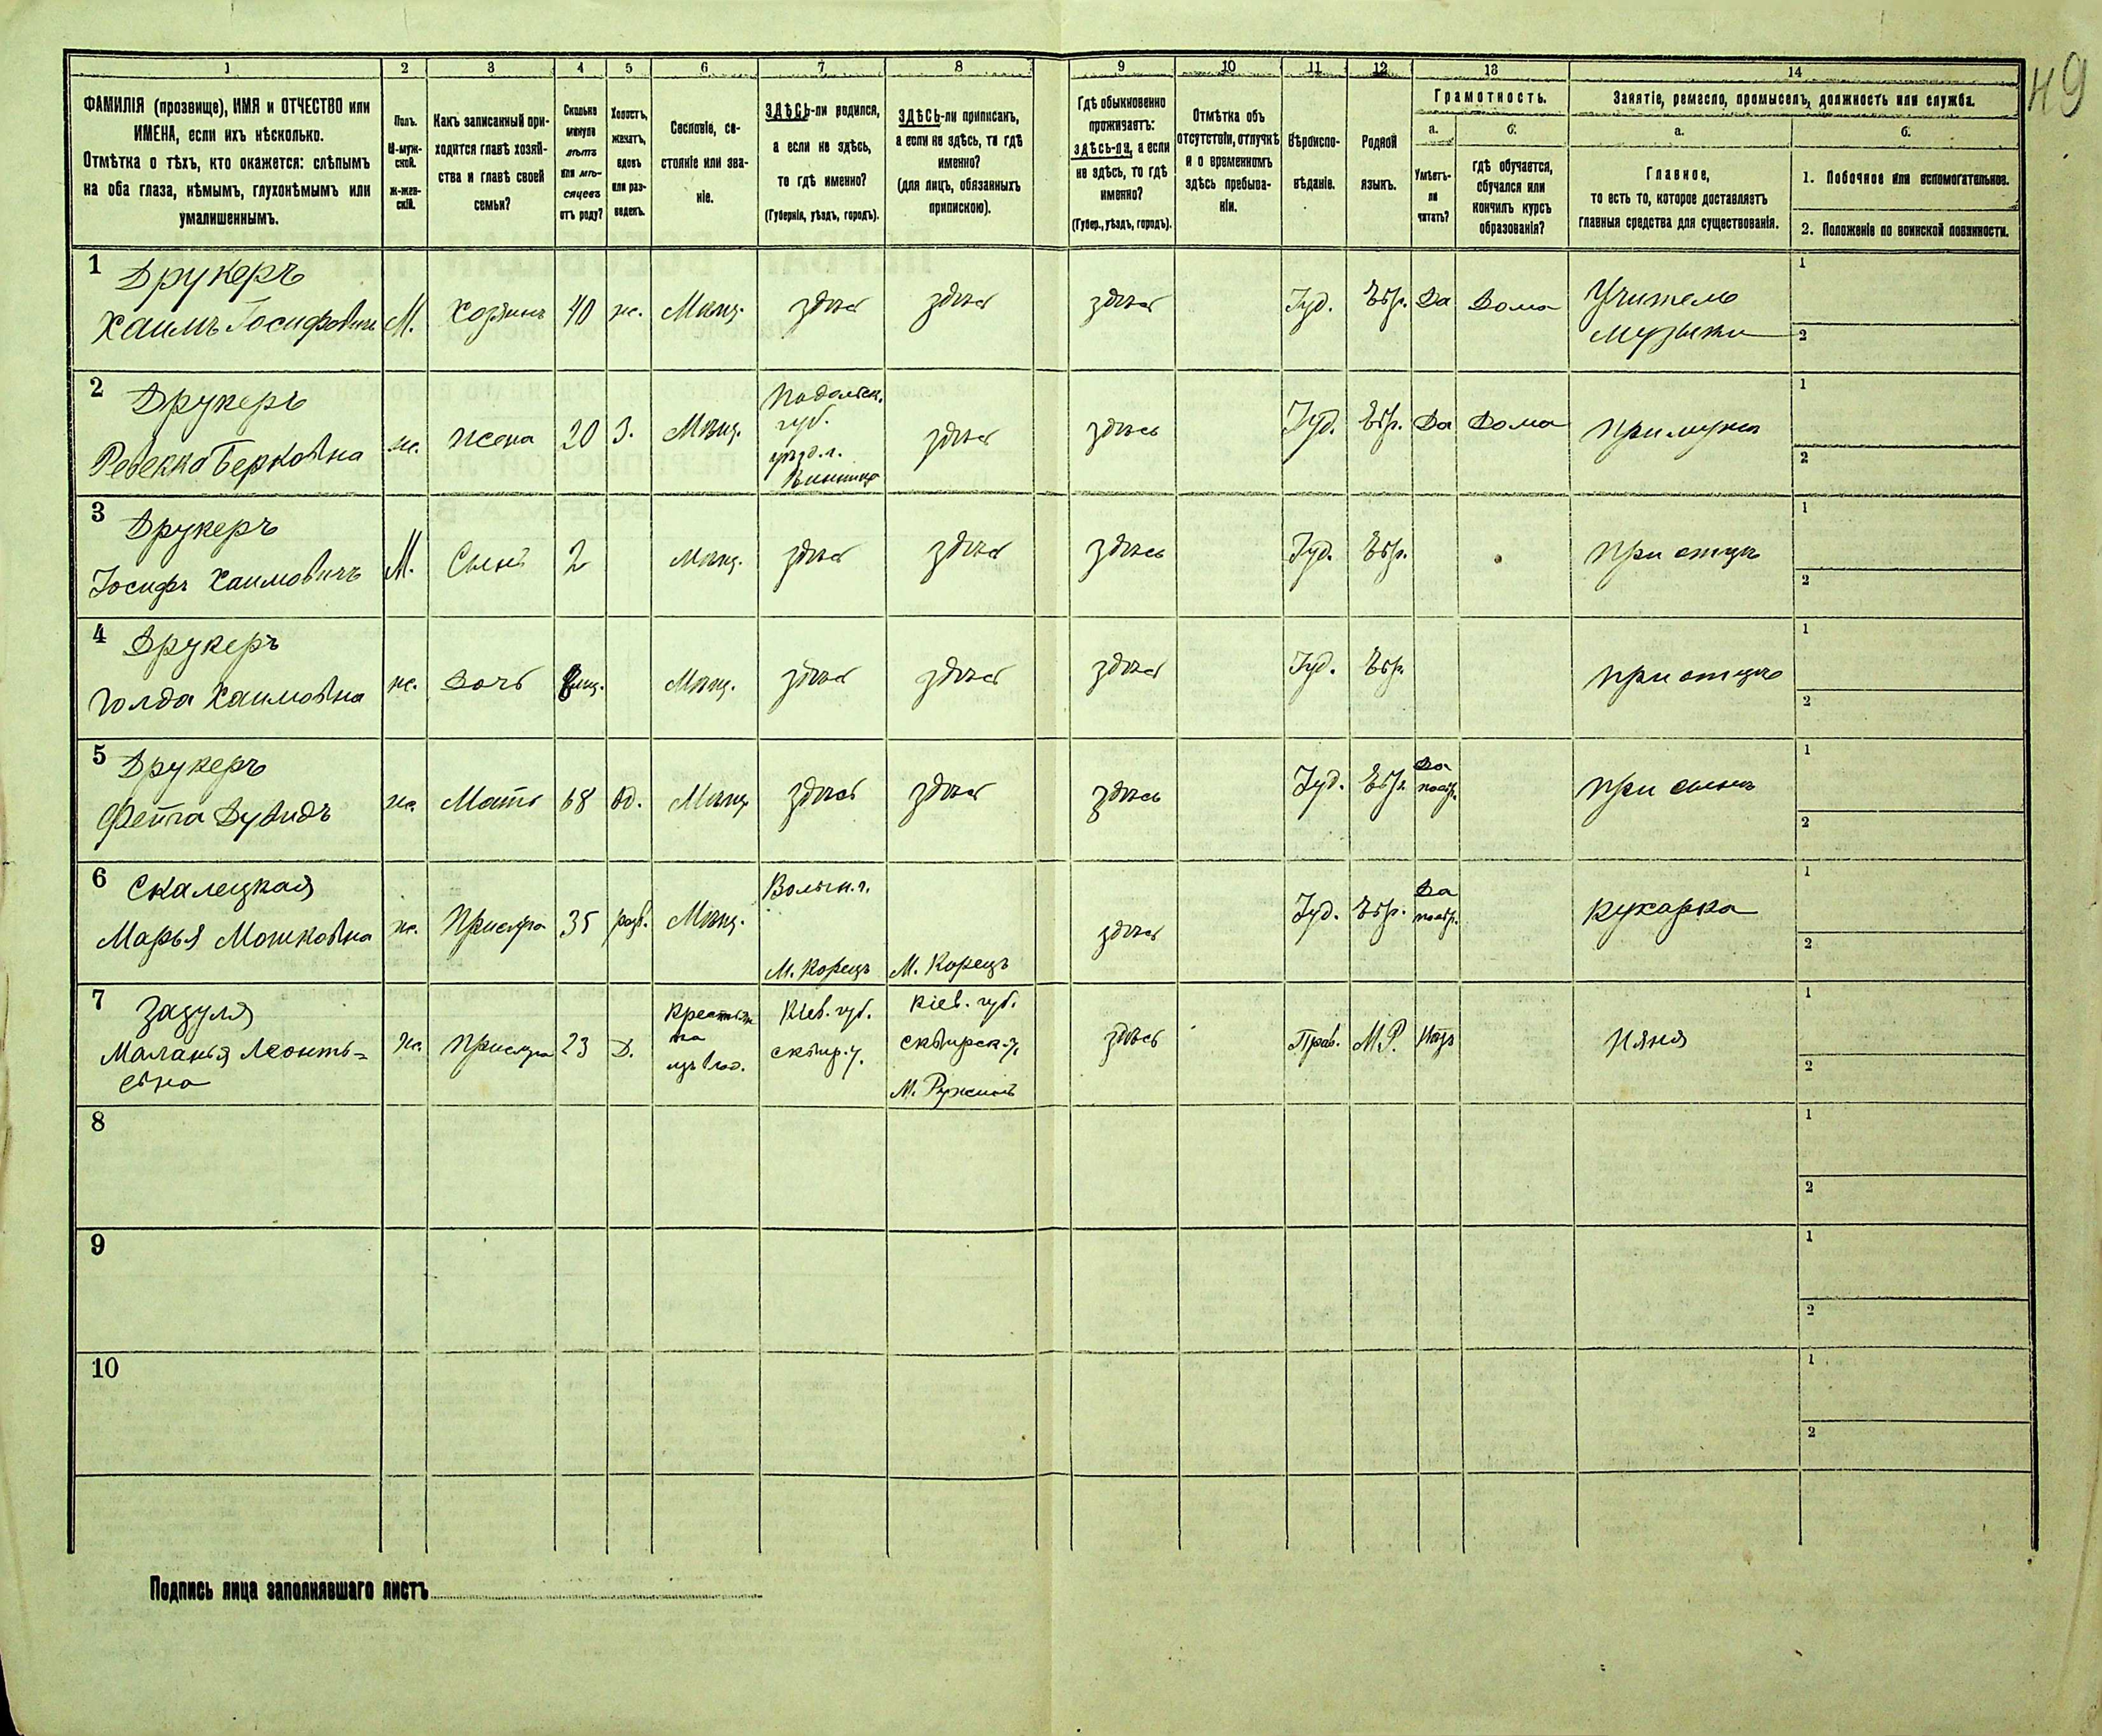 49
1 2 3 4 5 6 7 8 9 10 11 12 13 14
ФАМИЛІЯ (прозвище), ИМЯ и ОТЧЕСТВО или
ИМЕНА, если ихъ нѣсколько.
Отмѣтка о тѣхъ, кто окажется: слѣпымъ
на оба глаза, нѣмымъ, глухонѣмымъ или
умалишеннымъ.
Полъ.
М-муж-
ской.
Ж-жен-
скій.
Какъ записанный при-
ходится главѣ хозяй-
ства и главѣ своей
семьи?
Сколько
минуло
лѣтъ
или мѣ-
сяцевъ
отъ роду?
Холостъ,
женатъ,
вдовъ
или раз-
веденъ.
Сословіе, со-
стояніе или зва-
ніе.
ЗДѢСЬ-ли родился,
а если не здѣсь,
то гдѣ именно?
(Губернія, уѣздъ, городъ).
ЗДѢСЬ-ли приписанъ,
а если не здѣсь, то гдѣ
именно?
(для лицъ, обязанныхъ
припискою).
Гдѣ обыкновенно
проживаетъ:
здѣсь-ли, а если
не здѣсь, то гдѣ
именно?
(Губер., уѣздъ, городъ).
Отмѣтка объ
отсутствіи, отлучкѣ
и о временномъ
здѣсь пребыва-
ніи.
Вѣроиспо-
вѣданіе.
Родной
языкъ.
Грамотность.
а.
Умѣетъ-
ли
читать?
б.
гдѣ обучается,
обучался или
кончилъ курсъ
образованія?
Занятіе, ремесло, промыселъ, должность или служба.
а.
Главное,
то есть то, которое доставляетъ
главныя средства для существованія.
б.
1. Побочное или вспомогательное.
2. Положеніе по воинской повинности.
1 Друкеръ
Хаимъ Іосифовичъ М. Хозяинъ 40 ж. Мѣщ. здѣсь здѣсь здѣсь Іуд. Евр. Да Дома Учитель
музыки
1
2
2 Друкеръ
Ребекка Берковна ж. жена 20 З. Мѣщ. Подольск.
губ.
уѣзд. г.
Винница здѣсь здѣсь Іуд. Евр. Да Дома при мужѣ
1
2
3 Друкеръ
Іосифъ Хаимовичъ М. Сынъ 2 Мѣщ. здѣсь здѣсь здѣсь Іуд. Евр. при отцѣ
1
2
4 Друкеръ
Голда Хаимовна ж. Дочь мѣщ. Мѣщ. здѣсь здѣсь здѣсь Іуд. Евр. при отцѣ
1
2
5 Друкеръ
Фейга Дувидъ ж. Мать 68 вд. Мѣщ. здѣсь здѣсь здѣсь Іуд. Евр. Да
поевр. при сынѣ
1
2
6 Скалецкая
Марья Мошковна ж. Прислуга 35 разв. Мѣщ. Волын. г.
М. Корецъ М. Корецъ здѣсь Іуд. Евр. Да
поевр. кухарка
1
2
7 Зазуля
Маланья Леонть=
евна ж. Прислуга 23 Д. Крестьян
ка
изъ влад. Кіев. губ.
сквир. у. Кіев. губ.
сквирск. у.
М. Ружинъ здѣсь Прав. М.Р. Нѣтъ няня
1
2
8
1
2
9
1
2
10
1
2
Подпись лица заполнявшаго листъ